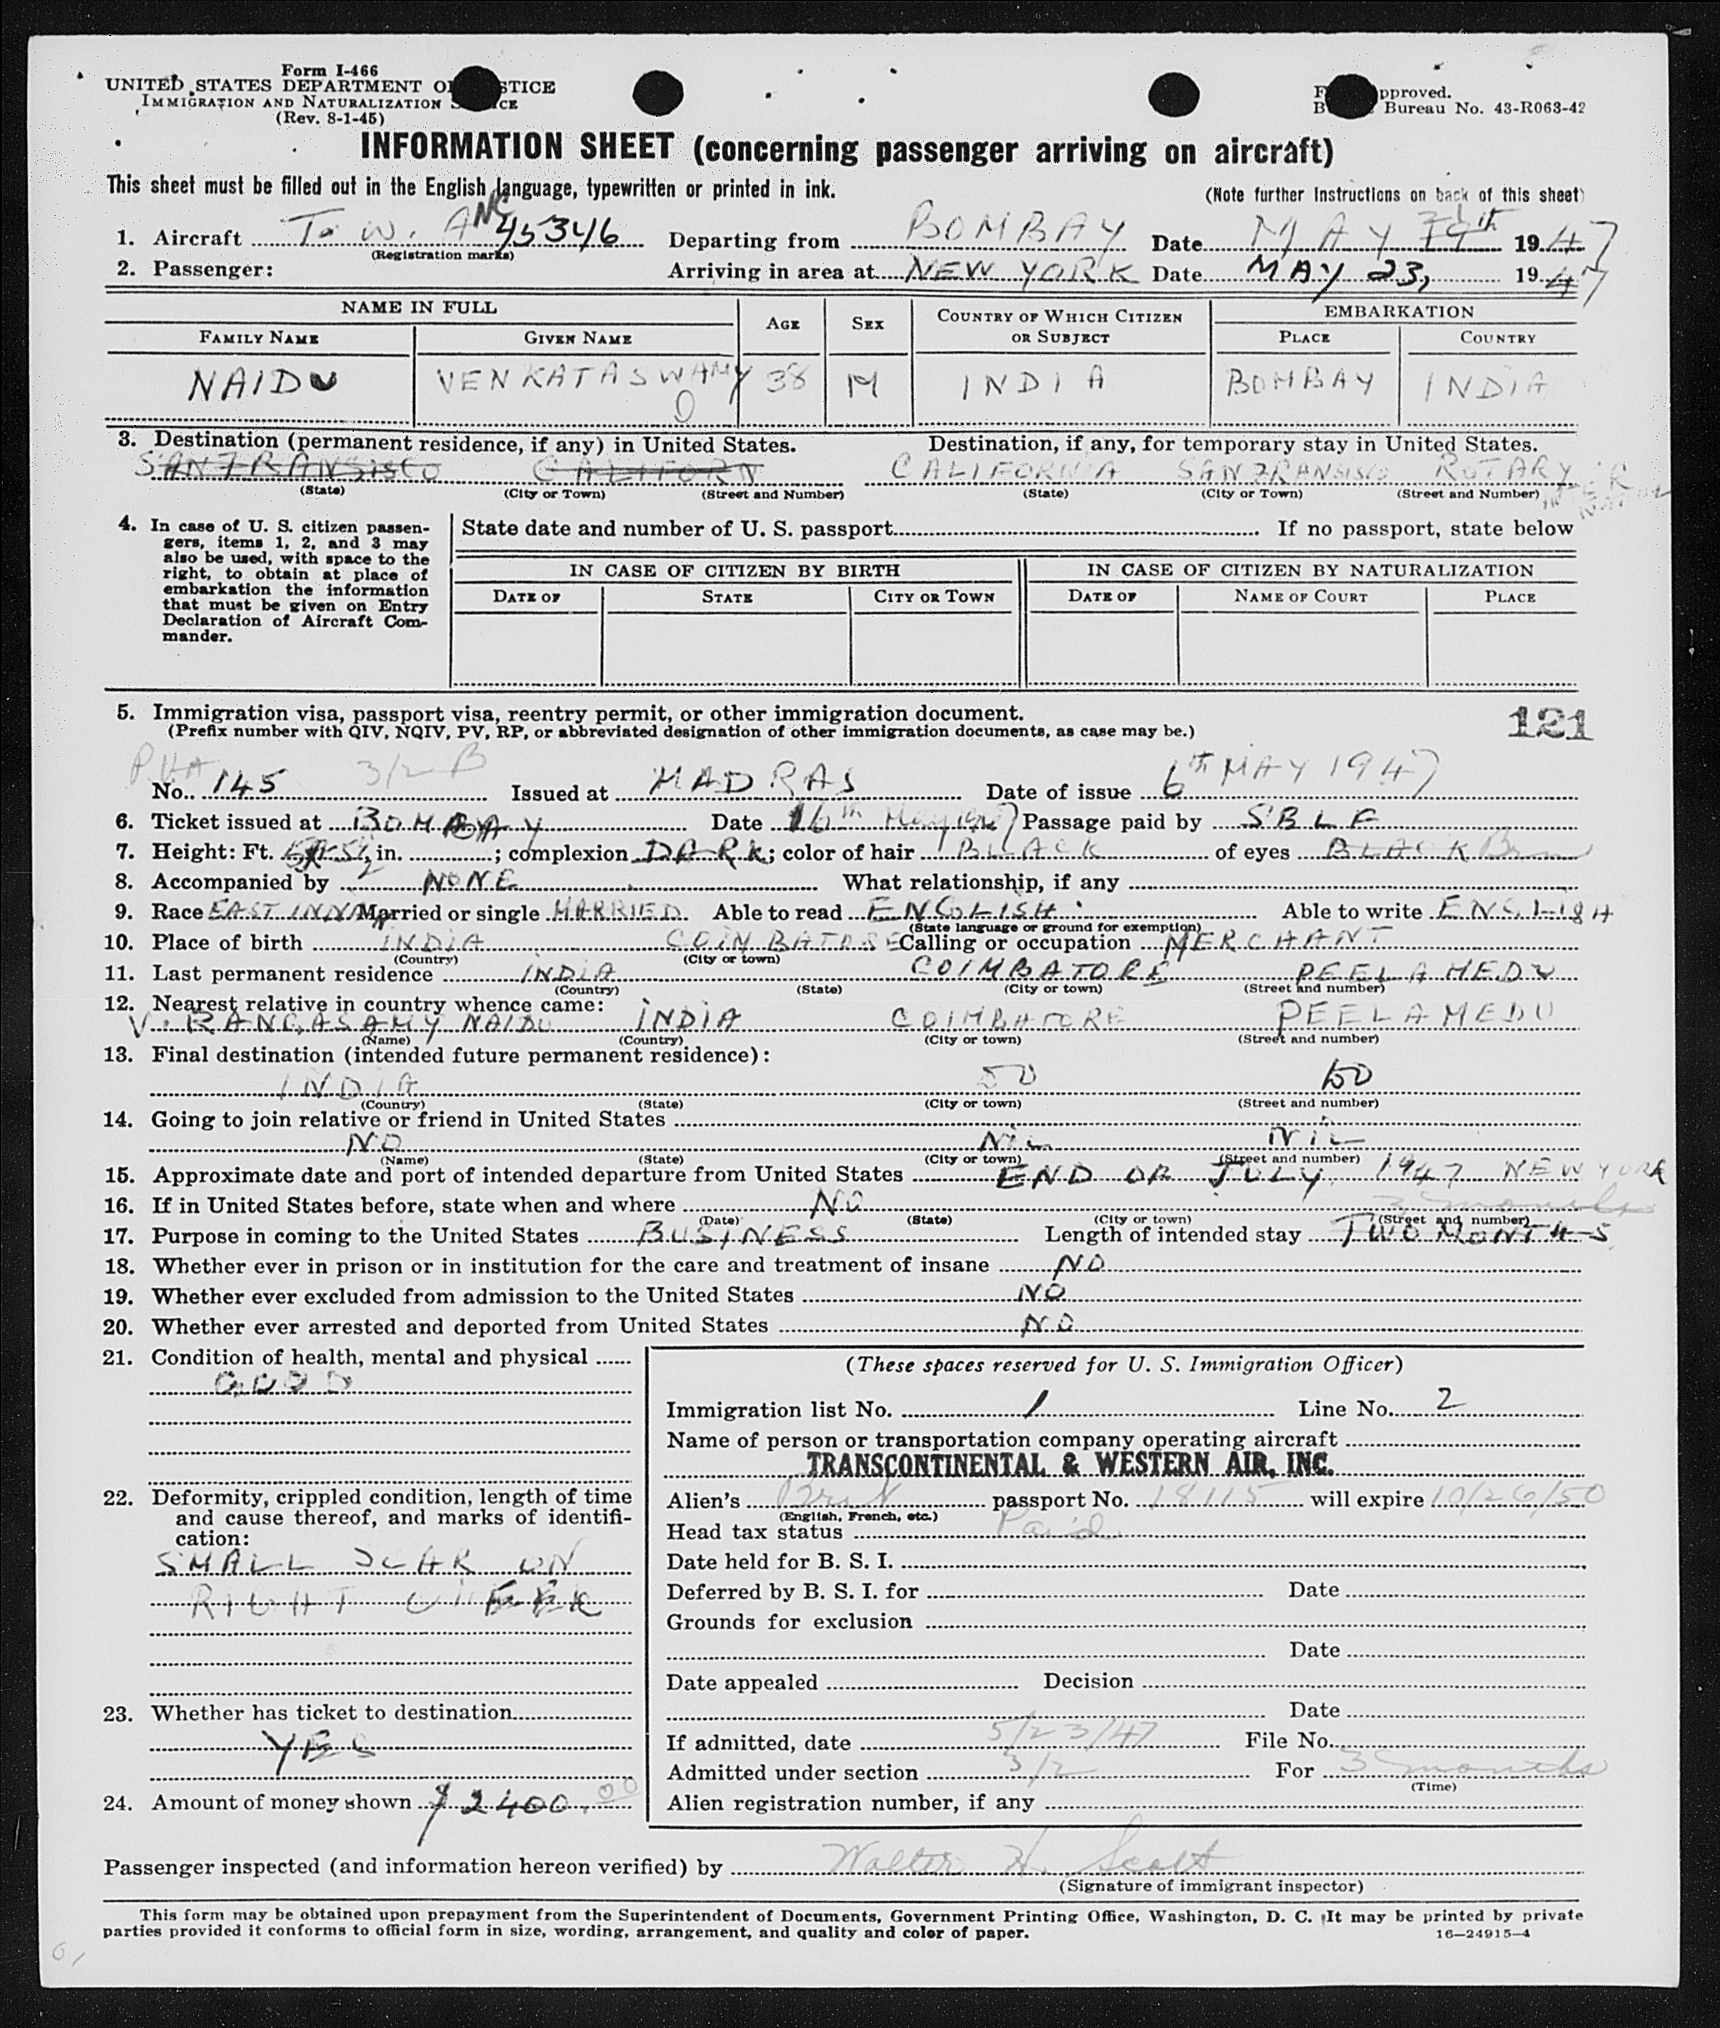 Form I-466
UNITED STATES DEPARTMENT OF JUSTICE
IMMIGRATION AND NATURALIZATION SERVICE
(Rev. 8-1-45)
pproved.
Bureau No. 43-R063-42
INFORMATION SHEET (concerning passenger arriving on aircraft)
This sheet must be filled out in the English language, typewritten or printed in ink.
(Note further instructions on back of this sheet)
1. Aircraft T. W. A NC 45346 Departing from BOMBAY Date MAY 1947
(Registration marks)
2. Passenger: Arriving in area at NEW YORK Date MAY 23, 1947
NAME IN FULL AGE SEX COUNTRY OF WHICH CITIZEN OR SUBJECT EMBARKATION
FAMILY NAME GIVEN NAME PLACE COUNTRY
NAIDU VENKATASWAMY 38 M INDIA BOMBAY INDIA
3. Destination (permanent residence, if any) in United States. Destination, if any, for temporary stay in United States.
SANFRANSISCO CALIFORN CALIFORNIA SANFRANSISCO ROTARY
(State) (City or Town) (Street and Number) (State) (City or Town) (Street and Number)
4. In case of U. S. citizen passengers, items 1, 2, and 3 may also be used, with space to the right, to obtain at place of embarkation the information that must be given on Entry Declaration of Aircraft Commander.
State date and number of U. S. passport If no passport, state below
IN CASE OF CITIZEN BY BIRTH IN CASE OF CITIZEN BY NATURALIZATION
DATE OF STATE CITY OR TOWN DATE OF NAME OF COURT PLACE
5. Immigration visa, passport visa, reentry permit, or other immigration document.
(Prefix number with QIV, NQIV, PV, RP, or abbreviated designation of other immigration documents, as case may be.)
121
No. 145 3/2 B Issued at MADRAS Date of issue 6th MAY 1947
6. Ticket issued at BOMBAY Date 16th May 1947 Passage paid by SBLF
7. Height: Ft. in. ; complexion DARK; color of hair BLACK of eyes BLACK Brn
8. Accompanied by NONE What relationship, if any
9. Race EAST INDIAN Married or single MARRIED. Able to read ENGLISH Able to write ENGLISH
(State language or ground for exemption)
10. Place of birth INDIA COIMBATORE Calling or occupation MERCHANT
(Country) (City or town)
11. Last permanent residence INDIA COIMBATORE PEELAMEDU
(Country) (State) (City or town) (Street and number)
12. Nearest relative in country whence came:
V. RANGASAMY NAIDU INDIA COIMBATORE PEELAMEDU
(Name) (Country) (City or town) (Street and number)
13. Final destination (intended future permanent residence):
INDIA
(Country) (State) (City or town) (Street and number)
14. Going to join relative or friend in United States
NO NIL NIL
(Name) (State) (City or town) (Street and number)
15. Approximate date and port of intended departure from United States END OR JULY 1947 NEW YORK
16. If in United States before, state when and where NO
3 months
(Date) (State) (City or town) (Street and number)
17. Purpose in coming to the United States BUSINESS Length of intended stay TWO MONTHS
18. Whether ever in prison or in institution for the care and treatment of insane NO
19. Whether ever excluded from admission to the United States NO
20. Whether ever arrested and deported from United States NO
21. Condition of health, mental and physical
GOOD
22. Deformity, crippled condition, length of time and cause thereof, and marks of identification:
SMALL SCAR ON
RIGHT CHEEK
23. Whether has ticket to destination
YES
24. Amount of money shown $2400.00
(These spaces reserved for U. S. Immigration Officer)
Immigration list No. 1 Line No. 2
Name of person or transportation company operating aircraft
TRANSCONTINENTAL & WESTERN AIR, INC.
Alien's Brit passport No. 18115 will expire 10/26/50
(English, French, etc.)
Head tax status Paid
Date held for B. S. I.
Deferred by B. S. I. for Date
Grounds for exclusion
Date
Date appealed Decision
Date
If admitted, date 5/23/47 File No.
Admitted under section 3/2 For 3 months
(Time)
Alien registration number, if any
Passenger inspected (and information hereon verified) by Walter H. Scott
(Signature of immigrant inspector)
This form may be obtained upon prepayment from the Superintendent of Documents, Government Printing Office, Washington, D. C. It may be printed by private
parties provided it conforms to official form in size, wording, arrangement, and quality and color of paper.
16—24915-4